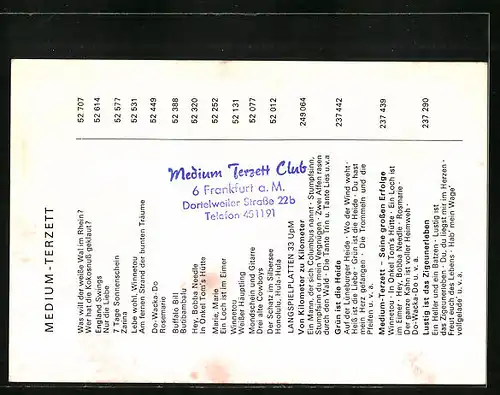 MEDIUM-TERZETT
Was will der weiße Wal im Rhein?
Wer hat die Kokosnuß geklaut? 52 707
England Swings
Nur die Liebe 52 614
7 Tage Sonnenschein
Zarina 52 577
Lebe wohl, Winnetou
Am fernen Strand der bunten Träume 52 531
Do-Wacka-Do
Rosemarie 52 449
Buffalo Bill
Budlbambalu 52 388
Hey, Bobba Needle
In Onkel Tom's Hütte 52 320
Marie, Maria
Ein Loch ist im Eimer 52 252
Winnetou
Weißer Häuptling 52 131
Mondschein und Gitarre
Drei alte Cowboys 52 077
Der Schatz im Silbersee
Honolulu, Hula-Hula 52 012
LANGSPIELPLATTEN 33 UpM
Von Kilometer zu Kilometer 249 064
Ein Mann, der sich Columbus nannt · Stumpfsinn,
Stumpfsinn du mein Vergnügen · Zwei Affen rasen
durch den Wald · Die Tante Trin u. Tante Lies u.v.a
Grün ist die Heide 237 442
Auf der Lüneburger Heide · Wo der Wind weht ·
Heiß ist die Liebe · Grün ist die Heide · Du hast
mein Herz gefangen · Die Trommeln und die
Pfeifen u. v. a.
Medium-Terzett - Seine großen Erfolge 237 439
Winnetou · In Onkel Tom's Hütte · Ein Loch ist
im Eimer · Hey, Bobba Needle · Rosmarie ·
Der ganze Kahn ist voller Heimweh ·
Do-Wacka-Do u. v. a.
Lustig ist das Zigeunerleben 237 290
Ein Heller und ein Batzen · Lustig ist
das Zigeunerleben · Du, du liegst mir im Herzen ·
Freut euch des Lebens · Hab' mein Wage'
vollgelade' u. v. a.
Medium Terzett Club
6 Frankfurt a. M.
Dortelweiler Straße 22b
Telefon 451191